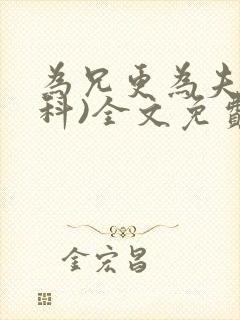 為兄更為夫
科)全文免費
金宏昌